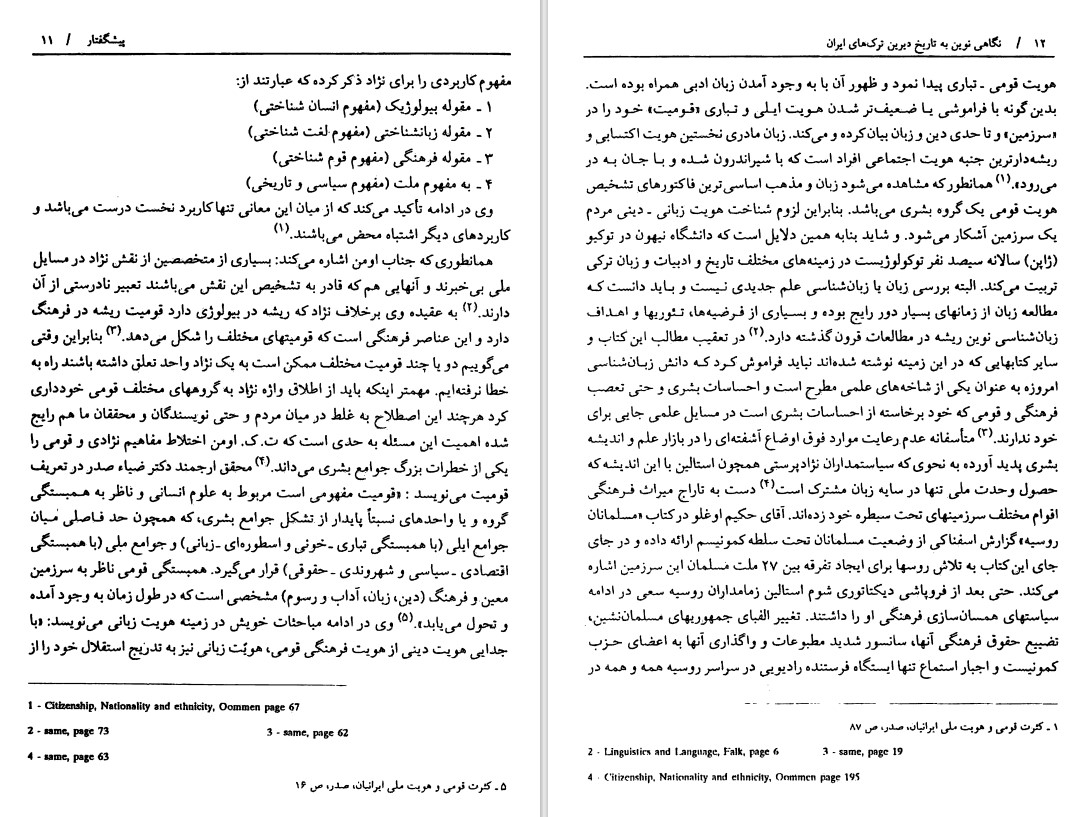 پیشگفتار / ۱۱
مفهوم کاربردی را برای نژاد ذکر کرده که عبارتند از:
۱ ـ مقوله بیولوژیک (مفهوم انسان شناختی)
۲ ـ مقوله زبانشناختی (مفهوم لغت شناختی)
۳ ـ مقوله فرهنگی (مفهوم قوم شناختی)
۴ ـ به مفهوم ملت (مفهوم سیاسی و تاریخی)
وی در ادامه تأکید می‌کند که از میان این معانی تنها کاربرد نخست درست می‌باشد و
کاربردهای دیگر اشتباه محض می‌باشند.(۱)
همانطوری که جناب اومن اشاره می‌کند: بسیاری از متخصصین از نقش نژاد در مسایل
ملی بی‌خبرند و آنهایی هم که قادر به تشخیص این نقش می‌باشند تعبیر نادرستی از آن
دارند.(۲) به عقیده وی برخلاف نژاد که ریشه در بیولوژی دارد قومیت ریشه در فرهنگ
دارد و این عناصر فرهنگی است که قومیتهای مختلف را شکل می‌دهد.(۳) بنابراین وقتی
می‌گوییم دو یا چند قومیت مختلف ممکن است به یک نژاد واحد تعلق داشته باشند راه به
خطا نرفته‌ایم. مهمتر اینکه باید از اطلاق واژه نژاد به گروههای مختلف قومی خودداری
کرد هرچند این اصطلاح به غلط در میان مردم و حتی نویسندگان و محققان ما هم رایج
شده اهمیت این مسئله به حدی است که ت. ک. اومن اختلاط مفاهیم نژادی و قومی را
یکی از خطرات بزرگ جوامع بشری می‌داند.(۴) محقق ارجمند دکتر ضیاء صدر در تعریف
قومیت می‌نویسد : «قومیت مفهومی است مربوط به علوم انسانی و ناظر به همبستگی
گروه و یا واحدهای نسبتاً پایدار از تشکل جوامع بشری، که همچون حد فاصلی میان
جوامع ایلی (با همبستگی تباری ـ خونی و اسطوره‌ای ـ زبانی) و جوامع ملی (با همبستگی
اقتصادی ـ سیاسی و شهروندی ـ حقوقی) قرار می‌گیرد. همبستگی قومی ناظر به سرزمین
معین و فرهنگ (دین، زبان، آداب و رسوم) مشخصی است که در طول زمان به وجود آمده
و تحول می‌یابد».(۵) وی در ادامه مباحثات خویش در زمینه هویت زبانی می‌نویسد: «با
جدایی هویت دینی از هویت فرهنگی قومی، هویّت زبانی نیز به تدریج استقلال خود را از
1 - Citizenship, Nationality and ethnicity, Oommen page 67
2 - same, page 73 3 - same, page 62
4 - same, page 63
۵ ـ کثرت قومی و هویت ملی ایرانیان، صدر، ص ۱۶
۱۲ / نگاهی نوین به تاریخ دیرین ترک‌های ایران
هویت قومی ـ تباری پیدا نمود و ظهور آن با به وجود آمدن زبان ادبی همراه بوده است.
بدین گونه با فراموشی یا ضعیف‌تر شدن هویت ایلی و تباری «قومیت» خود را در
«سرزمین» و تا حدی دین و زبان بیان کرده و می‌کند. زبان مادری نخستین هویت اکتسابی و
ریشه‌دارترین جنبه هویت اجتماعی افراد است که با شیراندرون شده و با جان به در
می‌رود».(۱) همانطور که مشاهده می‌شود زبان و مذهب اساسی‌ترین فاکتورهای تشخیص
هویت قومی یک گروه بشری می‌باشد. بنابراین لزوم شناخت هویت زبانی ـ دینی مردم
یک سرزمین آشکار می‌شود. و شاید بنابه همین دلایل است که دانشگاه نیهون در توکیو
(ژاپن) سالانه سیصد نفر توکولوژیست در زمینه‌های مختلف تاریخ و ادبیات و زبان ترکی
تربیت می‌کند. البته بررسی زبان یا زبان‌شناسی علم جدیدی نیست و باید دانست که
مطالعه زبان از زمانهای بسیار دور رایج بوده و بسیاری از فرضیه‌ها، تئوریها و اهداف
زبان‌شناسی نوین ریشه در مطالعات قرون گذشته دارد.(۲) در تعقیب مطالب این کتاب و
سایر کتابهایی که در این زمینه نوشته شده‌اند نباید فراموش کرد که دانش زبان‌شناسی
امروزه به عنوان یکی از شاخه‌های علمی مطرح است و احساسات بشری و حتی تعصب
فرهنگی و قومی که خود برخاسته از احساسات بشری است در مسایل علمی جایی برای
خود ندارند.(۳) متأسفانه عدم رعایت موارد فوق اوضاع آشفته‌ای را در بازار علم و اندیشه
بشری پدید آورده به نحوی که سیاستمداران نژادپرستی همچون استالین با این اندیشه که
حصول وحدت ملی تنها در سایه زبان مشترک است(۴) دست به تاراج میراث فرهنگی
اقوام مختلف سرزمینهای تحت سیطره خود زده‌اند. آقای حکیم اوغلو در کتاب «مسلمانان
روسیه» گزارش اسفناکی از وضعیت مسلمانان تحت سلطه کمونیسم ارائه داده و در جای
جای این کتاب به تلاش روسها برای ایجاد تفرقه بین ۲۷ ملت مسلمان این سرزمین اشاره
می‌کند. حتی بعد از فروپاشی دیکتاتوری شوم استالین زمامداران روسیه سعی در ادامه
سیاستهای همسان‌سازی فرهنگی او را داشتند. تغییر الفبای جمهوریهای مسلمان‌نشین،
تضییع حقوق فرهنگی آنها، سانسور شدید مطبوعات و واگذاری آنها به اعضای حزب
کمونیست و اجبار استماع تنها ایستگاه فرستنده رادیویی در سراسر روسیه همه و همه در
۱ ـ کثرت قومی و هویت ملی ایرانیان، صدر، ص ۸۷
2 - Linguistics and Language, Falk, page 6 3 - same, page 19
4 - Citizenship, Nationality and ethnicity, Oommen page 195